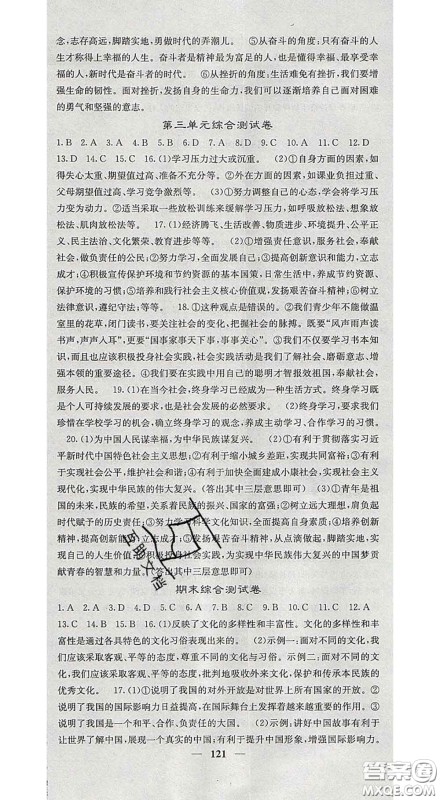 念,志存高远,脚踏实地,勇做时代的弄潮儿。 ⑤从奋斗的角度:只有奋斗的人
生才称得上幸福的人生。奋斗者是精神最为富足的人,也是最懂得幸福、最享受幸
福的人,新时代是奋斗者的时代。 ⑥从挫折的角度:生活难免有挫折,我们要
增强生命的韧性。面对挫折,发掘自身的生命力,我们可以逐渐培养自己面对困难
的勇气和坚强的意志。
第三单元综合测试卷
1. B 2. A 3. A 4. D 5. B 6. B 7. B 8. B 9. D 10. C 11. C 12. D
13. D 14. C 15. C 16. (1)学习压力过大或沉重。 (2)①自身方面的因素,如
信心不足、期望值过高、准备不充分等。②外在方面的因素,如课业负担过重、
父母期望值过高、学习竞争激烈等。 (3)①努力调整自己的心态,学会将学习压
力变为动力。②适当采取一些放松训练来缓解学习压力,如呼吸放松法、想象放
松法、肌肉放松法等。 17. (1)经济腾飞、生活改善、物质进步、环境提升、公平正
义、民主法治、文化繁荣、教育进步等等。 (2)①增强责任意识,服务社会、奉献
社会,做负责任的公民;②努力学习,全面发展自己;③提高创新意识和能力,立志
成才;④积极宣传保护环境和节约资源的基本国策,日常生活中,养成节约资源、
保护环境的习惯;⑤培养和践行社会主义核心价值观,发扬艰苦奋斗精神;⑥树立
法律意识,遵纪守法;等等。 18. ①这种观点是错误的。②我们青少年不能做温
室里的花草,闭门读书,要关注社会的变化,把握社会的脉搏。既要“风声雨声读
书声,声声入耳”,更要“国事家事天下事,事事关心”。③我们不仅要学习书本
知识,还应积极投身社会实践,社会实践活动是我们了解社会、磨砺意志、增
强本领的重要途径。④我们只有积极投身社会实践
服务人民。 19. (1)在当今社会,终身学习已经成为一种生活方式。终身学习既
是个人可持续发展的要求,也是社会发展的必然要求。 (2)终身学习,要求我们
珍惜在学校学习的机会,确立终身学习的观念,养成主动学习、合作学习的习惯。
20. (1)为中国人民谋幸福,为中华民族谋复兴。 (2)①有利于贯彻落实习近
平新时代中国特色社会主义思想;②有利于缩小城乡差距,实现共同富裕;③有利
于实现社会公平,维护社会和谐;④有利于加快全面建成小康社会,实现社会主义
现代化,实现中华民族的伟大复兴。(答出其中三层意思即可) (3)①青年是祖
国的未来,民族的希望,关系着民族的振兴、国家的富强;②树立远大理想,肩负起
时代赋予的历史责任;③努力学习科学文化知识,全面提高自身素质;④培养创新
精神,提高创新能力,立志成才;⑤发扬艰苦奋斗精神,从点滴做起,脚踏实地,实
现自己的人生价值,⑥积极投身社会实践,为实现中华民族伟大复兴的中国梦贡
献青春的智慧和力量。(答出其中三层意思即可)
期末综合测试卷
1. A 2. A 3. D 4. B 5. B 6. D 7. A 8. A 9. B 10. D 11. C 12. A
13. B 14. B 15. D 16. (1)反映了文化的多样性和丰富性。文化的多样性和丰
富性是通过各具特色的文化习俗表现出来的。 (2)示例一:面对不同的文化,我
们应该采取客观、平等的态度,尊重不同的文化与习俗。示例二:面对不同的文
化,我们应该采取客观、平等的态度,批判地吸收外来文化,保护和传承本民族的
优秀文化。 17. (1)①说明了我国的对外开放是对世界上所有国家的开放。②
说明了我国的国际影响力日益提高,在国际舞台上发挥着越来越重要的作用。③
说明了我国是一个和平、合作、负责任的大国。 (2)示例:讲好中国故事有利于
让世界了解中国,展现一个真实的中国;有利于提升中国形象,增强国际影响力。
121
互助文档
答案圈
MXQE.COM